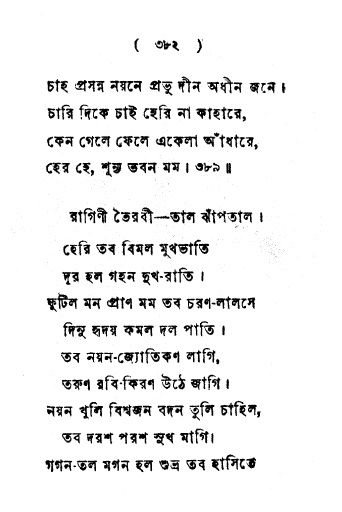 ( ৩৮২ )
চাহ প্রসন্ন নয়নে প্রভু দীন অধীন জনে।
চারি দিকে চাই হেরি না কাহারে,
কেন গেলে ফেলে একেলা আঁধারে,
হের হে, শূন্য ভবন মম। ৩৮৯॥
রাগিণী ভৈরবী—তাল ঝাঁপতাল।
হেরি তব বিমল মুখভাতি
দূর হল গহন দুখ-রাতি।
ফুটিল মন প্রাণ মম তব চরণ-লালসে
দিনু হৃদয় কমল দল পাতি।
তব নয়ন-জ্যোতিকণ লাগি,
তরুণ রবি-কিরণ উঠে জাগি।
নয়ন খুলি বিশ্বজন বদন তুলি চাহিল,
তব দরশ পরশ সুখ মাগি।
গগন-তল মগন হল শুভ্র তব হাসিতে